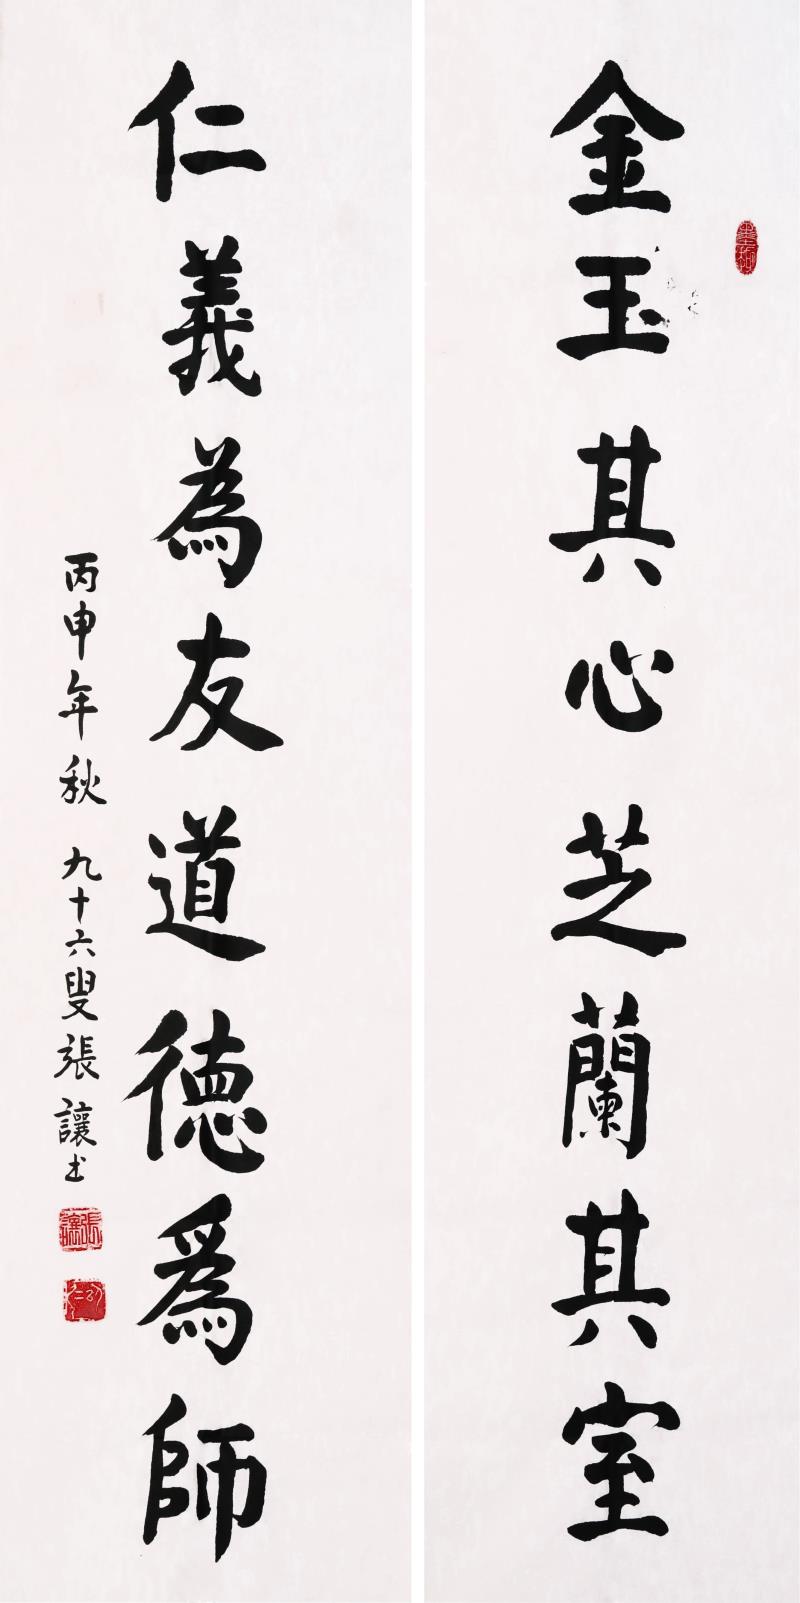 金玉其心芝蘭其室
仁義為友道德爲師
丙申年秋 九十六叟張讓书
張讓